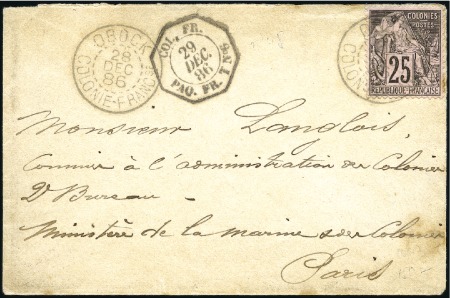 OBOCK
28
DEC
86
COLONIE-FRANCSE
COL. FR.
29
DEC.
86
PAQ. FR. T No
COLONIES
POSTES
25
REPUBLIQUE-FRANÇAISE
OBOCK
COLONIE
Monsieur Langlois,
Commis à l'administration des Colonies
2e Bureau -
Ministère de la marine & des Colonies
Paris